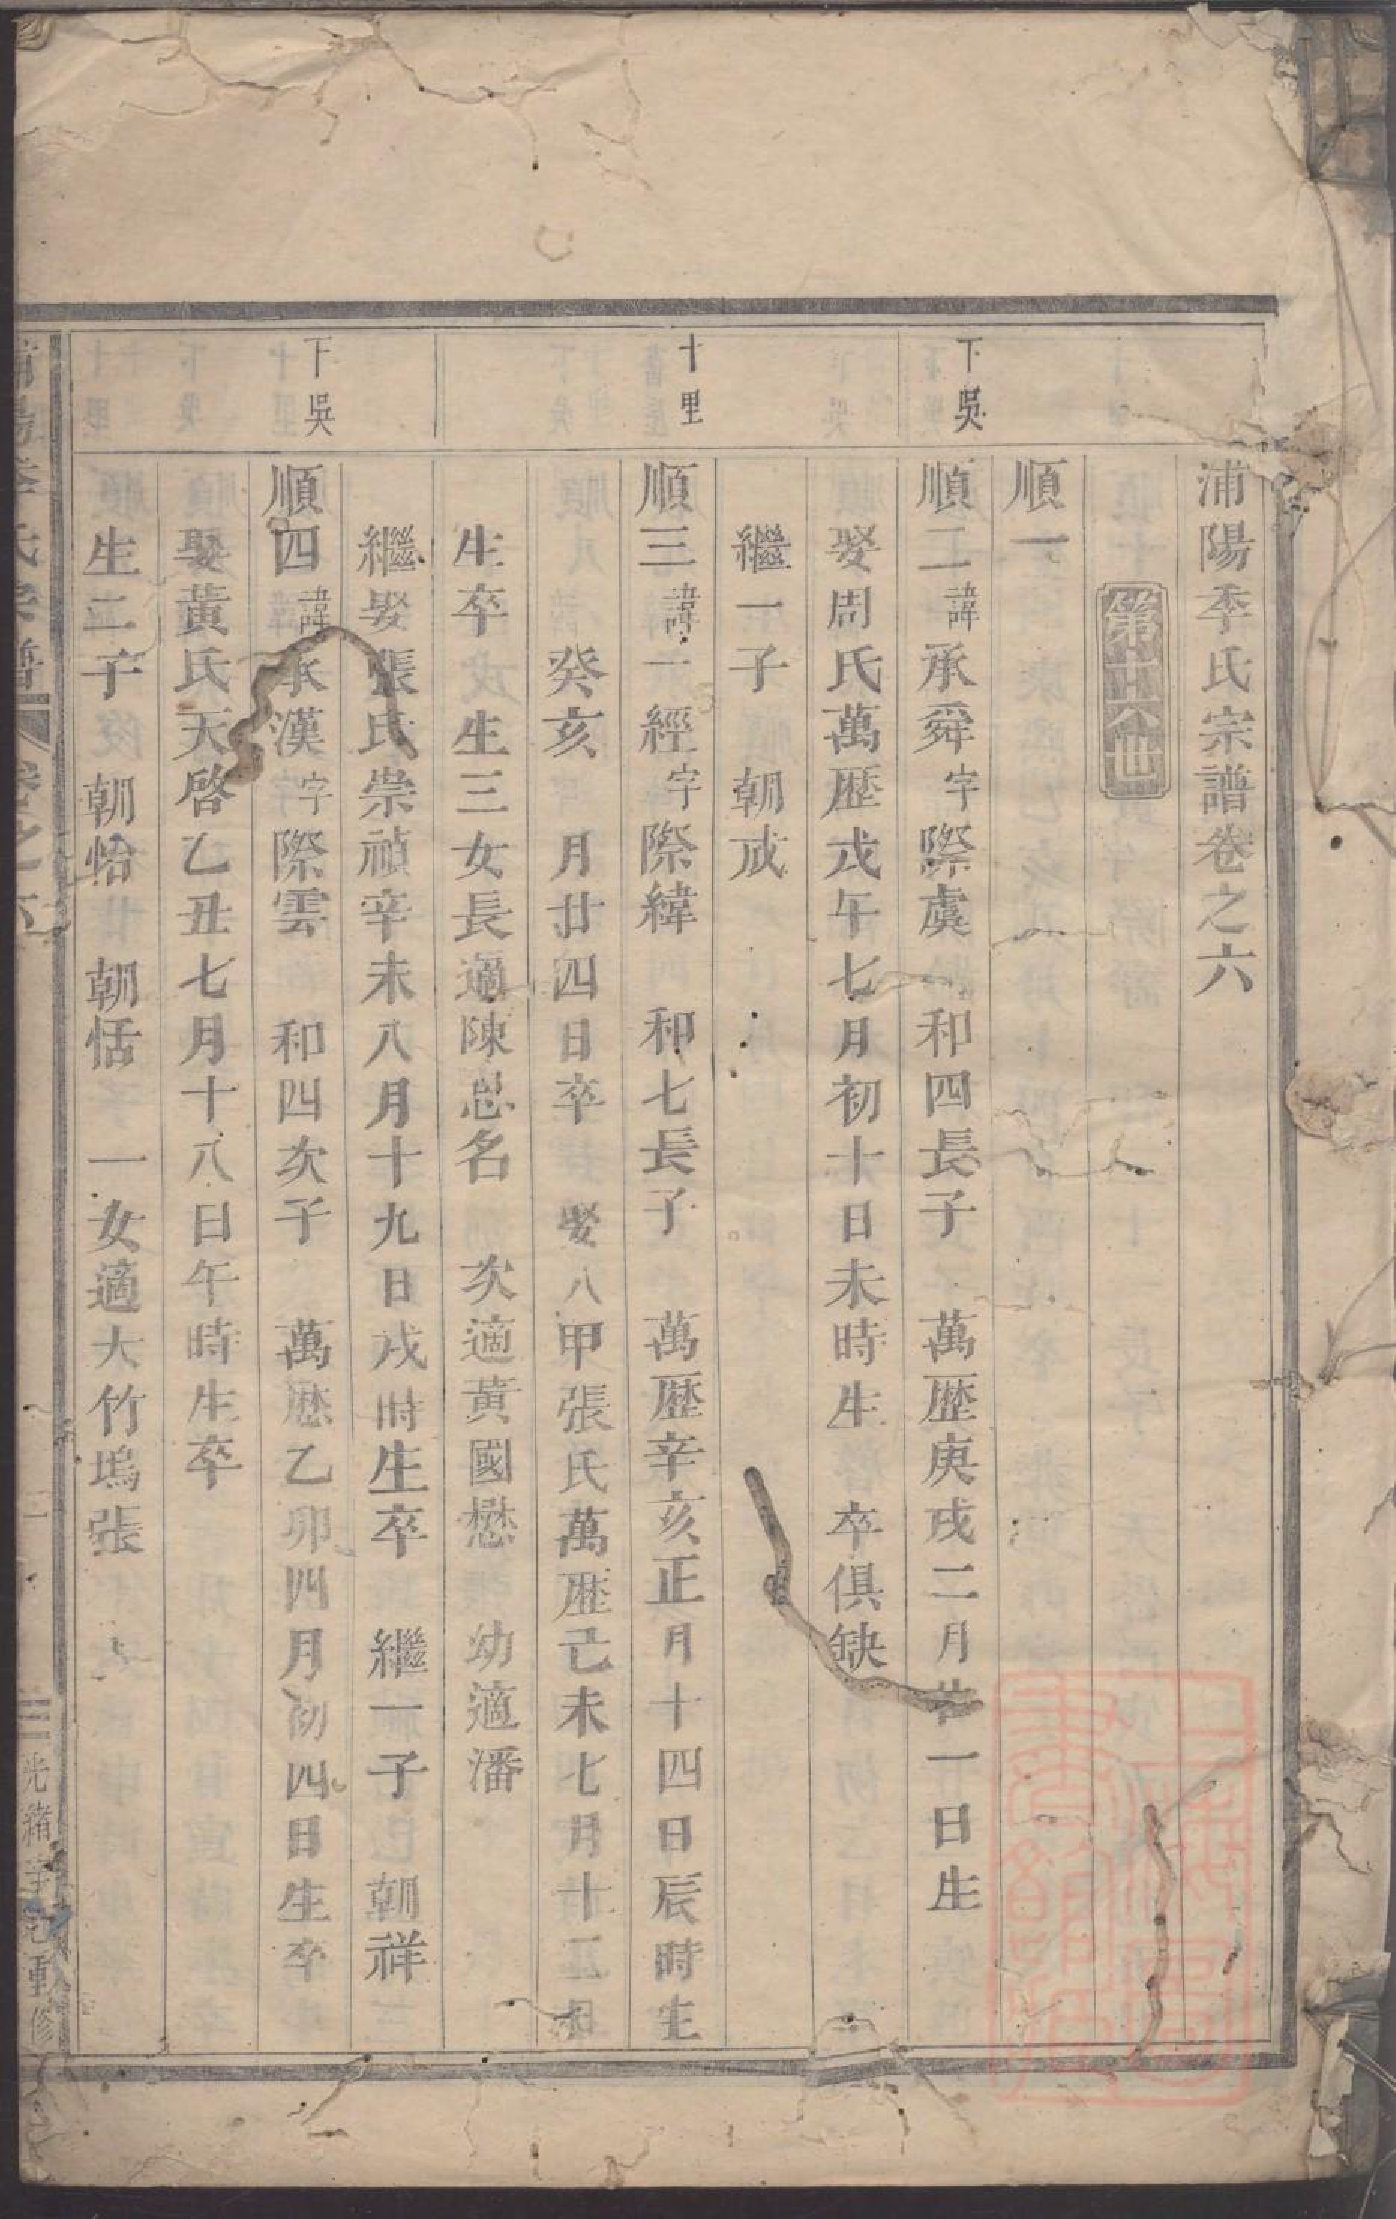 浦陽季氏宗譜卷之六
第十六世
順一
下吳
順二諱承舜字際虞　和四長子　萬歷庚戌二月廿一日生
娶周氏萬歷戊午七月初十日未時生　卒俱缺
繼一子　朝戍
十里
順三諱一經字際緯　和七長子　萬歷辛亥正月十四日辰時生
癸亥　月廿四日卒　娶八甲張氏萬歷己未七月十二日
生卒　生三女長適陳思名　次適黃國懋　幼適潘
繼娶張氏崇禎辛未八月十九日戌時生卒　繼一子　朝祥
下吳
順四諱承漢字際雲　和四次子　萬歷乙卯四月初四日生卒
娶黃氏天啓乙丑七月十八日午時生卒
生二子　朝怡　朝恬　一女適大竹塢張
浦陽季氏宗譜　卷之六　光緒辛巳重修